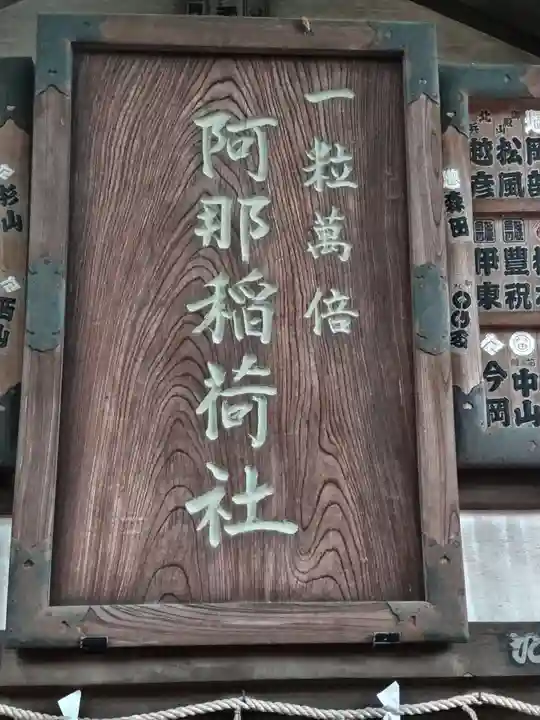 一粒萬倍
阿那稲荷社
杉山
西山
森田
北
松風
越彦
豊祝
甲東
中山
今岡